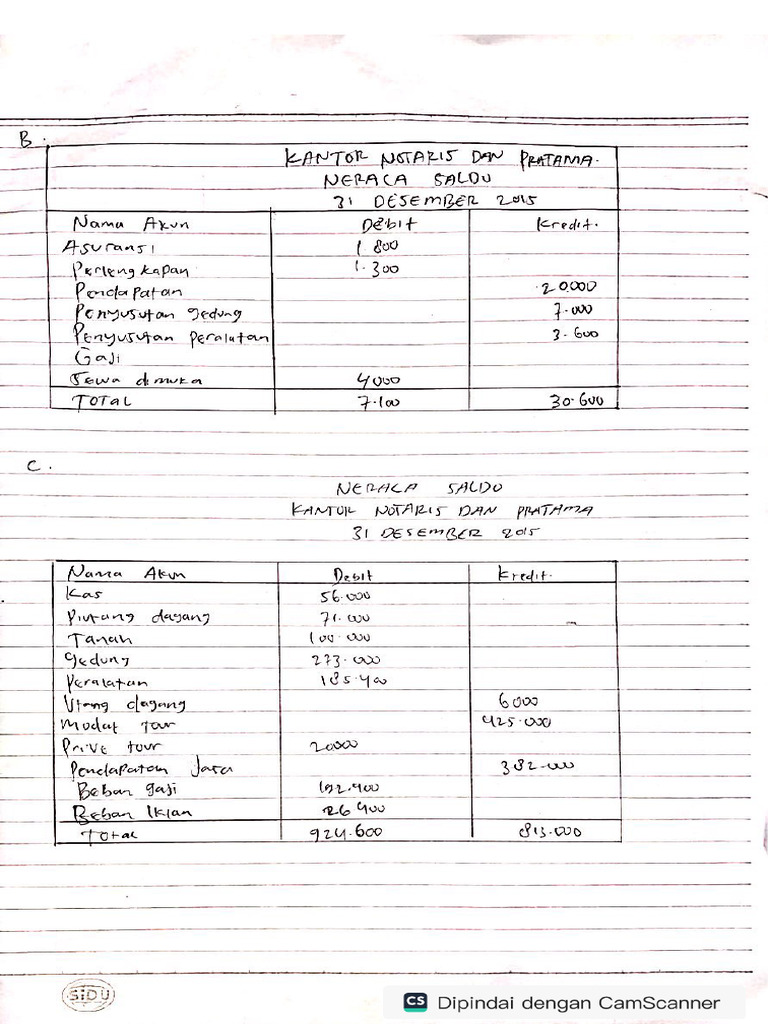 B.
KANTOR NOTARIS DAN PRATAMA.
NERACA SALDO
31 DESEMBER 2015
Nama Akun Debit Kredit.
Asuransi 1.800
Perlengkapan 1.300
Pendapatan 20.000
Penyusutan gedung 7.000
Penyusutan peralatan 3.600
Gaji
Sewa dimuka 4000
TOTAL 7.100 30.600
C.
NERACA SALDO
KANTOR NOTARIS DAN PRATAMA
31 DESEMBER 2015
Nama Akun Debit Kredit.
Kas 56.000
Piutang dagang 71.000
Tanah 100.000
gedung 273.000
Peralatan 185.400
Utang dagang 6000
Modal tour 425.000
Prive tour 20000
Pendapatan Jasa 382.000
Beban gaji 192.400
Beban Iklan 26400
Total 924.600 813.000
SIDU
CS Dipindai dengan CamScanner